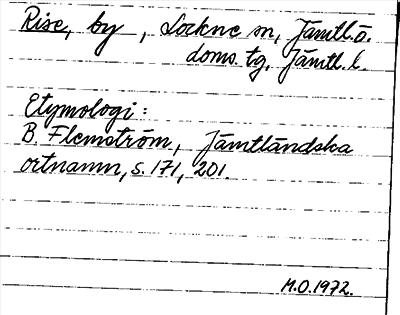 Rise, by, Lockne sn, Jämtl.ö.
doms. tg, Jämtl. l.
Etymologi:
B. Flemström, Jämtländska
ortnamn, s. 171, 201.
M.O. 1972.